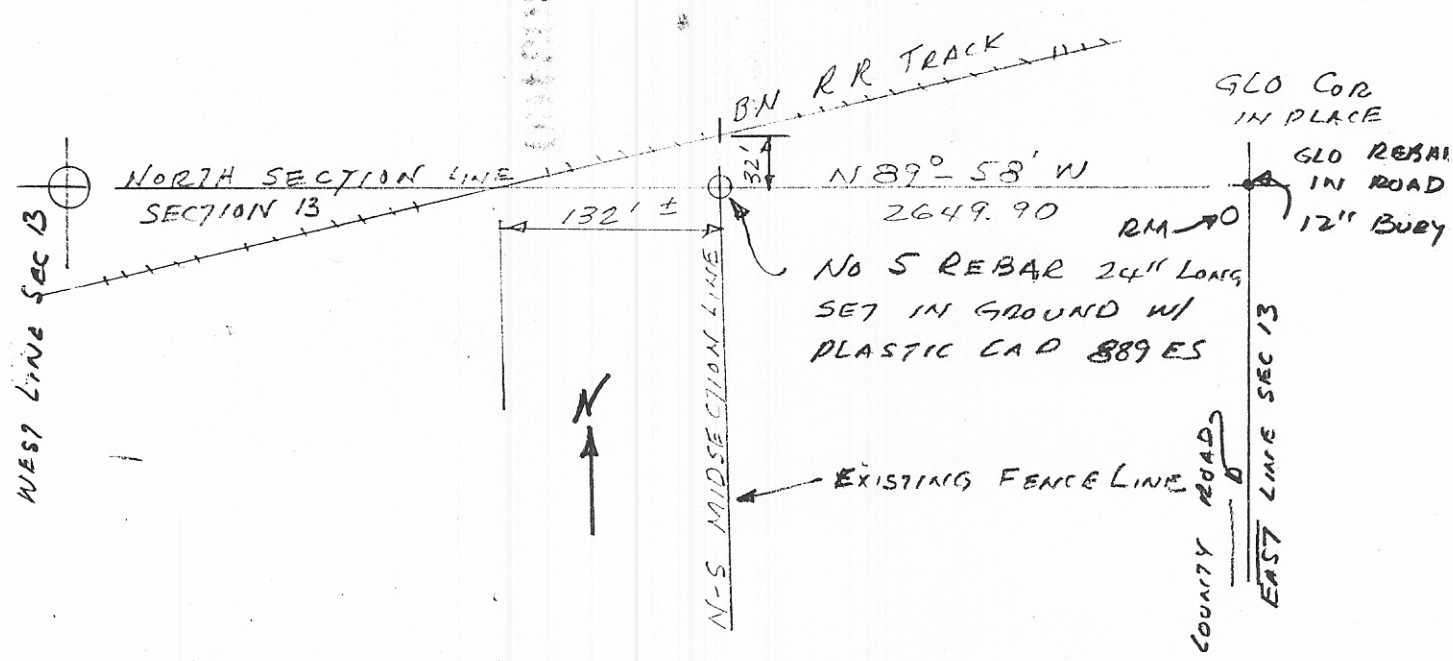 BN RR TRACK
GLO COR
IN PLACE
GLO REBAR
IN ROAD
12" BURY
NORTH SECTION LINE
SECTION 13
32'
N 89° - 58' W
2649.90
132' ±
RM
NO 5 REBAR 24" LONG
SET IN GROUND W/
PLASTIC CAP 889 ES
WEST LINE SEC 13
N
N-S MIDSECTION LINE
EXISTING FENCE LINE
COUNTY ROAD
EAST LINE SEC 13